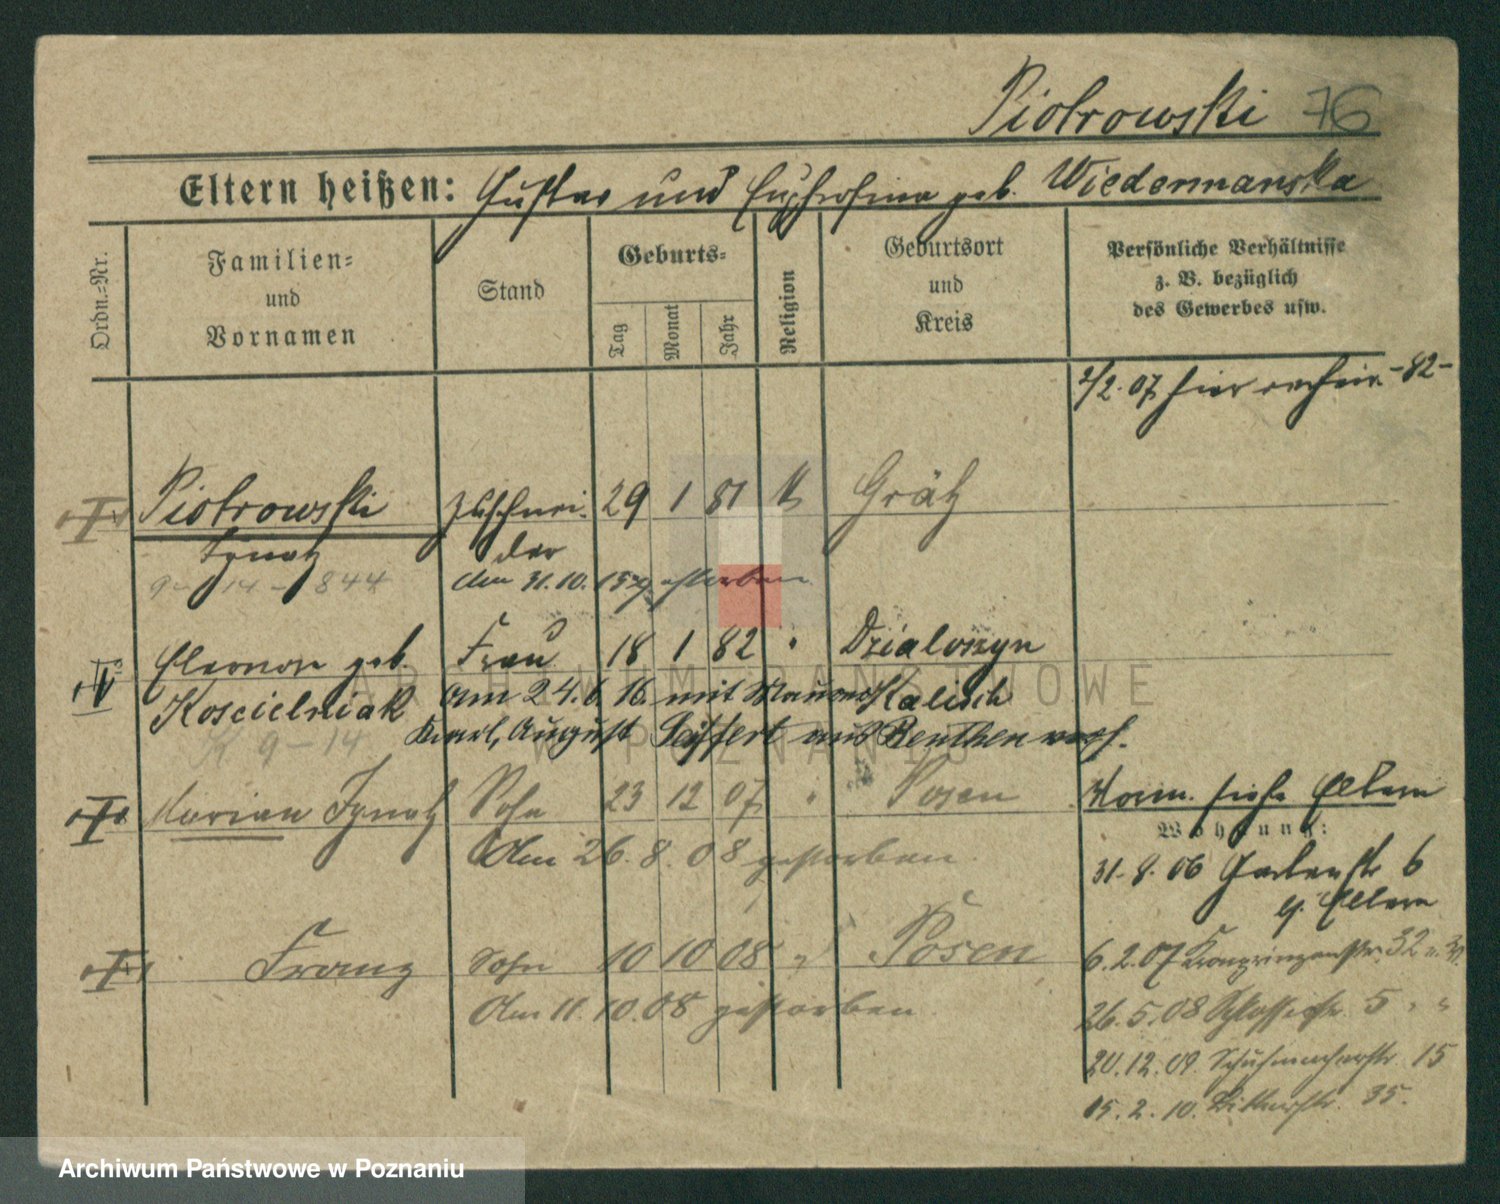 Piotrowski 76
Eltern heißen: Gustav und Euphrosina geb. Wiedermanska
Ordn.-Nr.
Familien- und Vornamen
Stand
Geburts-
Tag
Monat
Jahr
Religion
Geburtsort und Kreis
Persönliche Verhältnisse z. B. bezüglich des Gewerbes usw.
2/2. 07 hier -82-
Piotrowski Zuschnei- 29 1 81 k Grätz
Ignatz der
9-14-844 am 31.10. gestorben
Eleonore geb. Frau 18 1 82 " Dzialoszyn
Koscielniak Am 24.6.16. mit Kalisch
K 9-14 Karl, August Seiffert aus Beuthen verh.
Marian Ignatz Sohn 23 12 07 " Posen
Am 26.8.08 gestorben.
Franz Sohn 10 10 08 " Posen
Am 11.10.08 gestorben.
Vorm. siehe Eltern
Wohnung:
31.8.06 Gartenstr 6
b/ Eltern
6.2.07 Kronprinzenstr. 32
26.5.08 Schlosserstr. 5 " "
20.12.09. Schuhmacherstr. 15
15.2.10. 35.
ARCHIWUM PAŃSTWOWE
W POZNANIU
Archiwum Państwowe w Poznaniu